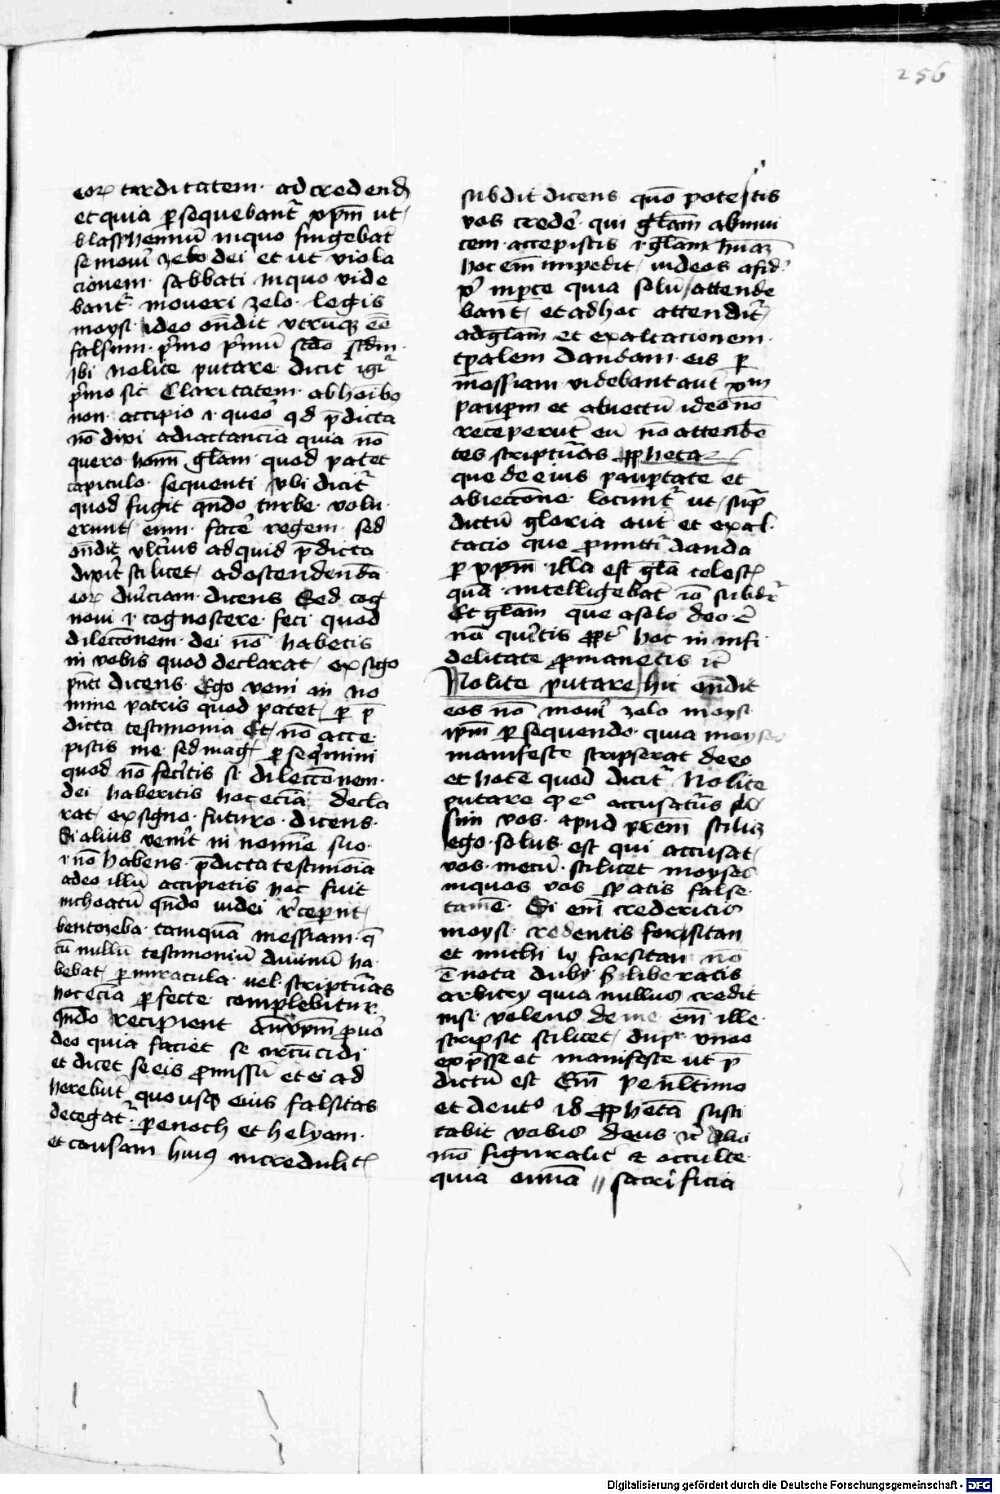 256
eoꝝ tarditatem · ad credendū
et quia ꝑsequebant᷑ xp̄m ut
blasphemiū in quo fingebāt
se moueri zelo dei et ut viola
cionem · sabbati · in quo vide
bant᷑ · moueri zelo · legis
moysi · ideo on̄dit utrūqꝫ eē
falsum · pͥmo pͥmū scdo scdm
ibi nolite putare dicit igͥ
pͥmo sic Claritatem · ab hoībꝰ
non · accipio · i · quero qd p̄dicta
nō dixi ad iactanciā quia nō
quero hoīm glām quod patet
capitulo · sequenti ubi dicit᷑
quod fugit qn̄do turbe · volu
erunt eum · facere regem · sed
on̄dit ulterius ad quid p̄dicta
dixit scilicet ad ostendendā
eoꝝ duriciam · dicens Sed cog
noui · i · cognoscere · feci · quod
dileccōnem · dei nō habetis
in vobis quod declarat ex sigo
pn̄ti dicens · Ego veni in no
mine patris quod patet ꝑ p̄
dicta testimonia Et nō acce
pistis me · sed magꝭ ꝑsequimini
quod nō fecitis si dileccōnem ·
dei haberitis hoc eciā decla
rat ex signo · futuro · dicens ·
Si alius venerit in nomīe suo ·
i · nō habens · p̄dicta testimōia
adeo illū accipietis hoc fuit
inchoatū qn̄do iudei receperunt
bentozeba · tamquā messiam · qͥ
cū nullū testimoniū diuinū ha
bebat ꝑ miracula · uel scripturas
hoc eciā ꝑfecte complebitur
qn̄do recipient Antixpm̄ pro
deo quia faciet se circūcidi
et dicet se eis promissū et ei ad
herebūt quousqꝫ eius falsitas
detegat᷑ · ꝑ enoch et helyam ·
et causam huiꝰ incredulitꝭ
subdit dicens quō potestis
vos credere · qui glām ab inui
cem · accepistis · i · glām hūanā
hoc em̄ impedit iudeos a fide
quia solū attende
bant · et ad hoc attendit᷑
ad glām et exaltacionem ·
tp̄alem dandam · eis ꝑ
messiam videbant aut xp̄m
pauperem et abiectū ideo nō
receperūt eū nō attendē
tes scripturas ꝓphetaꝝ
que de eius paupertate et
abieccōne · locunt᷑ ut supͣ
dictū gloria aut et exal
tacio que promittit danda
ꝑ xp̄m · illa est glā celestꝭ
quā · intelligebat iō subdit
Et glām que a solo deo · ē
nō queritis ꝓpter hoc in infi
delitate ꝑmanetis ·
Nolite putare hic on̄dit
eos nō moueri zelo moysi ·
ip̄m ꝑsequendo · quia moyses
manifeste scripserat de eo
et hoc ē quod dicit᷑ Nolite
putare qͥ ego accusaturus
sim vos · apud prēm scilicꝫ
ego · solus · est qui accusat
vos · mecū · scilicet moyses
in quos vos speratis false ·
tamē · Si em̄ crederitis
moysi · credentis forsitan
et michi forsitan nō
ē nota dubij sꝫ liberatis
arbitrij quia nullus credit
nisi volens de me em̄ ille
scripsit scilicet dupͬ uno
exp̄sse et manifeste ut p̄
dictū est Gen̄ penultimo
et deutͦ 18 ꝓphetā susci
tabit vobis deus · alio
mō figuralit᷑ et occulte
quia omīa sacrificia
Digitalisierung gefördert durch die Deutsche Forschungsgemeinschaft - DFG